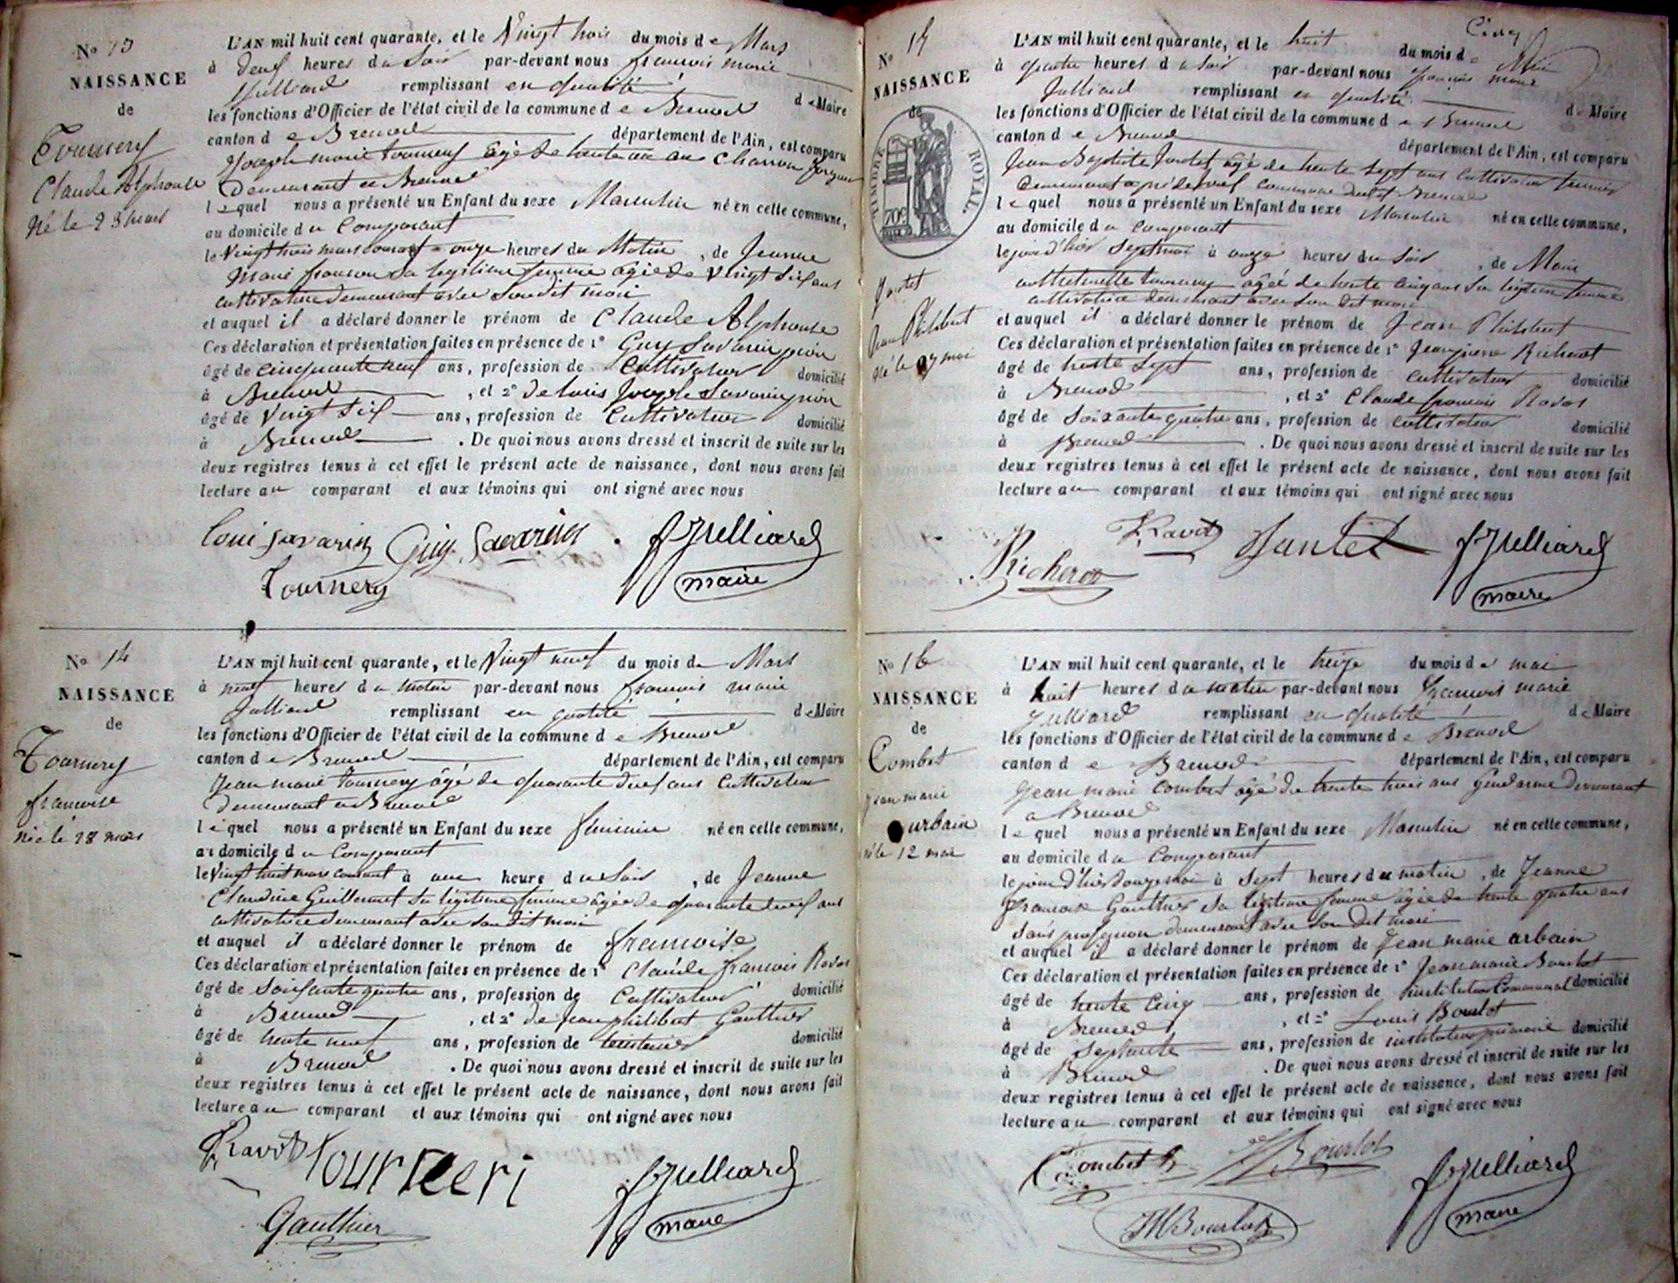 N° 13
NAISSANCE
de
Tournery
Claude Alphonse
Né le 23 mars
L'AN mil huit cent quarante, et le Vingt trois du mois de Mars
à deux heures du Soir par-devant nous françois marie
Julliard remplissant en qualité de Maire
les fonctions d'Officier de l'état civil de la commune de Brenod
canton de Brenod département de l'Ain, est comparu
Joseph marie tournery âgé de trente ans Charron
Demeurant à Brenod
lequel nous a présenté un Enfant du sexe Masculin né en cette commune,
au domicile du Comparant
le Vingt trois mars courant à onze heures du Matin, de Jeanne
Marie françon sa légitime femme âgée de Vingt six ans
cultivatrice demeurant avec Son dit mari
et auquel il a déclaré donner le prénom de Claude Alphonse
Ces déclaration et présentation faites en présence de 1° Guy Savarin
âgé de cinquante neuf ans, profession de Cultivateur domicilié
à Brenod, et 2° de louis Joseph Savarin
âgé de Vingt Six ans, profession de Cultivateur domicilié
à Brenod. De quoi nous avons dressé et inscrit de suite sur les
deux registres tenus à cet effet le présent acte de naissance, dont nous avons fait
lecture au comparant et aux témoins qui ont signé avec nous
Loui Savarin Guy Savarin fJulliard
Tournery maire
N° 14
NAISSANCE
de
Tournery
françoise
Née le 28 mars
L'AN mil huit cent quarante, et le Vingt neuf du mois de Mars
à neuf heures du matin par-devant nous françois marie
Julliard remplissant en qualité de Maire
les fonctions d'Officier de l'état civil de la commune de Brenod
canton de Brenod département de l'Ain, est comparu
Jean marie Tournery âgé de quarante deux ans Cultivateur
Demeurant à Brenod
lequel nous a présenté un Enfant du sexe féminin né en cette commune,
au domicile du Comparant
le Vingt huit mars courant à une heure du Soir, de Jeanne
Claudine Guillermet Sa légitime femme âgée de quarante deux ans
cultivatrice demeurant avec Son dit mari
et auquel il a déclaré donner le prénom de françoise
Ces déclaration et présentation faites en présence de 1° Claude françois Ravot
âgé de Soixante quatre ans, profession de Cultivateur domicilié
à Brenod, et 2° de Jean philibert Gauthier
âgé de trente neuf ans, profession de domicilié
à Brenod. De quoi nous avons dressé et inscrit de suite sur les
deux registres tenus à cet effet le présent acte de naissance, dont nous avons fait
lecture au comparant et aux témoins qui ont signé avec nous
Ravot Tourneri fJulliard
Gauthier maire
N° 15
NAISSANCE
de
TIMBRE ROYAL.
70c
Jantet
Jean Philibert
Né le 7 mai
L'AN mil huit cent quarante, et le huit du mois de Mai
à quatre heures du Soir par-devant nous françois marie
Julliard remplissant en qualité de Maire
les fonctions d'Officier de l'état civil de la commune de Brenod
canton de Brenod département de l'Ain, est comparu
Jean Baptiste Jantet âgé de trente Sept ans Cultivateur fermier
Demeurant à commune dudit Brenod
lequel nous a présenté un Enfant du sexe Masculin né en cette commune,
au domicile du comparant
le jour d'hier Sept mai à onze heures du Soir, de Marie
tournery âgée de trente cinq ans Sa légitime femme
cultivatrice demeurant avec Son dit mari
et auquel il a déclaré donner le prénom de Jean Philibert
Ces déclaration et présentation faites en présence de 1° Jean pierre Richerot
âgé de trente Sept ans, profession de cultivateur domicilié
à Brenod, et 2° Claude françois Ravot
âgé de Soixante quatre ans, profession de cultivateur domicilié
à Brenod. De quoi nous avons dressé et inscrit de suite sur les
deux registres tenus à cet effet le présent acte de naissance, dont nous avons fait
lecture au comparant et aux témoins qui ont signé avec nous
Richerot Ravot Jantet fJulliard
maire
N° 16
NAISSANCE
de
Combet
Jean marie
urbain
né le 12 mai
L'AN mil huit cent quarante, et le treize du mois de mai
à huit heures du matin par-devant nous françois marie
Julliard remplissant en qualité de Maire
les fonctions d'Officier de l'état civil de la commune de Brenod
canton de Brenod département de l'Ain, est comparu
Jean marie Combet âgé de trente trois ans Gendarme Demeurant
à Brenod
lequel nous a présenté un Enfant du sexe Masculin né en cette commune,
au domicile du Comparant
le jour d'hier douze mai à Sept heures du matin, de Jeanne
françoise Gauthier Sa légitime femme âgée de trente quatre ans
Sans profession demeurant avec Son dit mari
et auquel il a déclaré donner le prénom de Jean marie urbain
Ces déclaration et présentation faites en présence de 1° Jean marie Bourlot
âgé de trente cinq ans, profession de instituteur Communal domicilié
à Brenod, et 2° Louis Bourlot
âgé de Septante ans, profession de instituteur primaire domicilié
à Brenod. De quoi nous avons dressé et inscrit de suite sur les
deux registres tenus à cet effet le présent acte de naissance, dont nous avons fait
lecture au comparant et aux témoins qui ont signé avec nous
Combet Bourlot fJulliard
JMBourlot maire